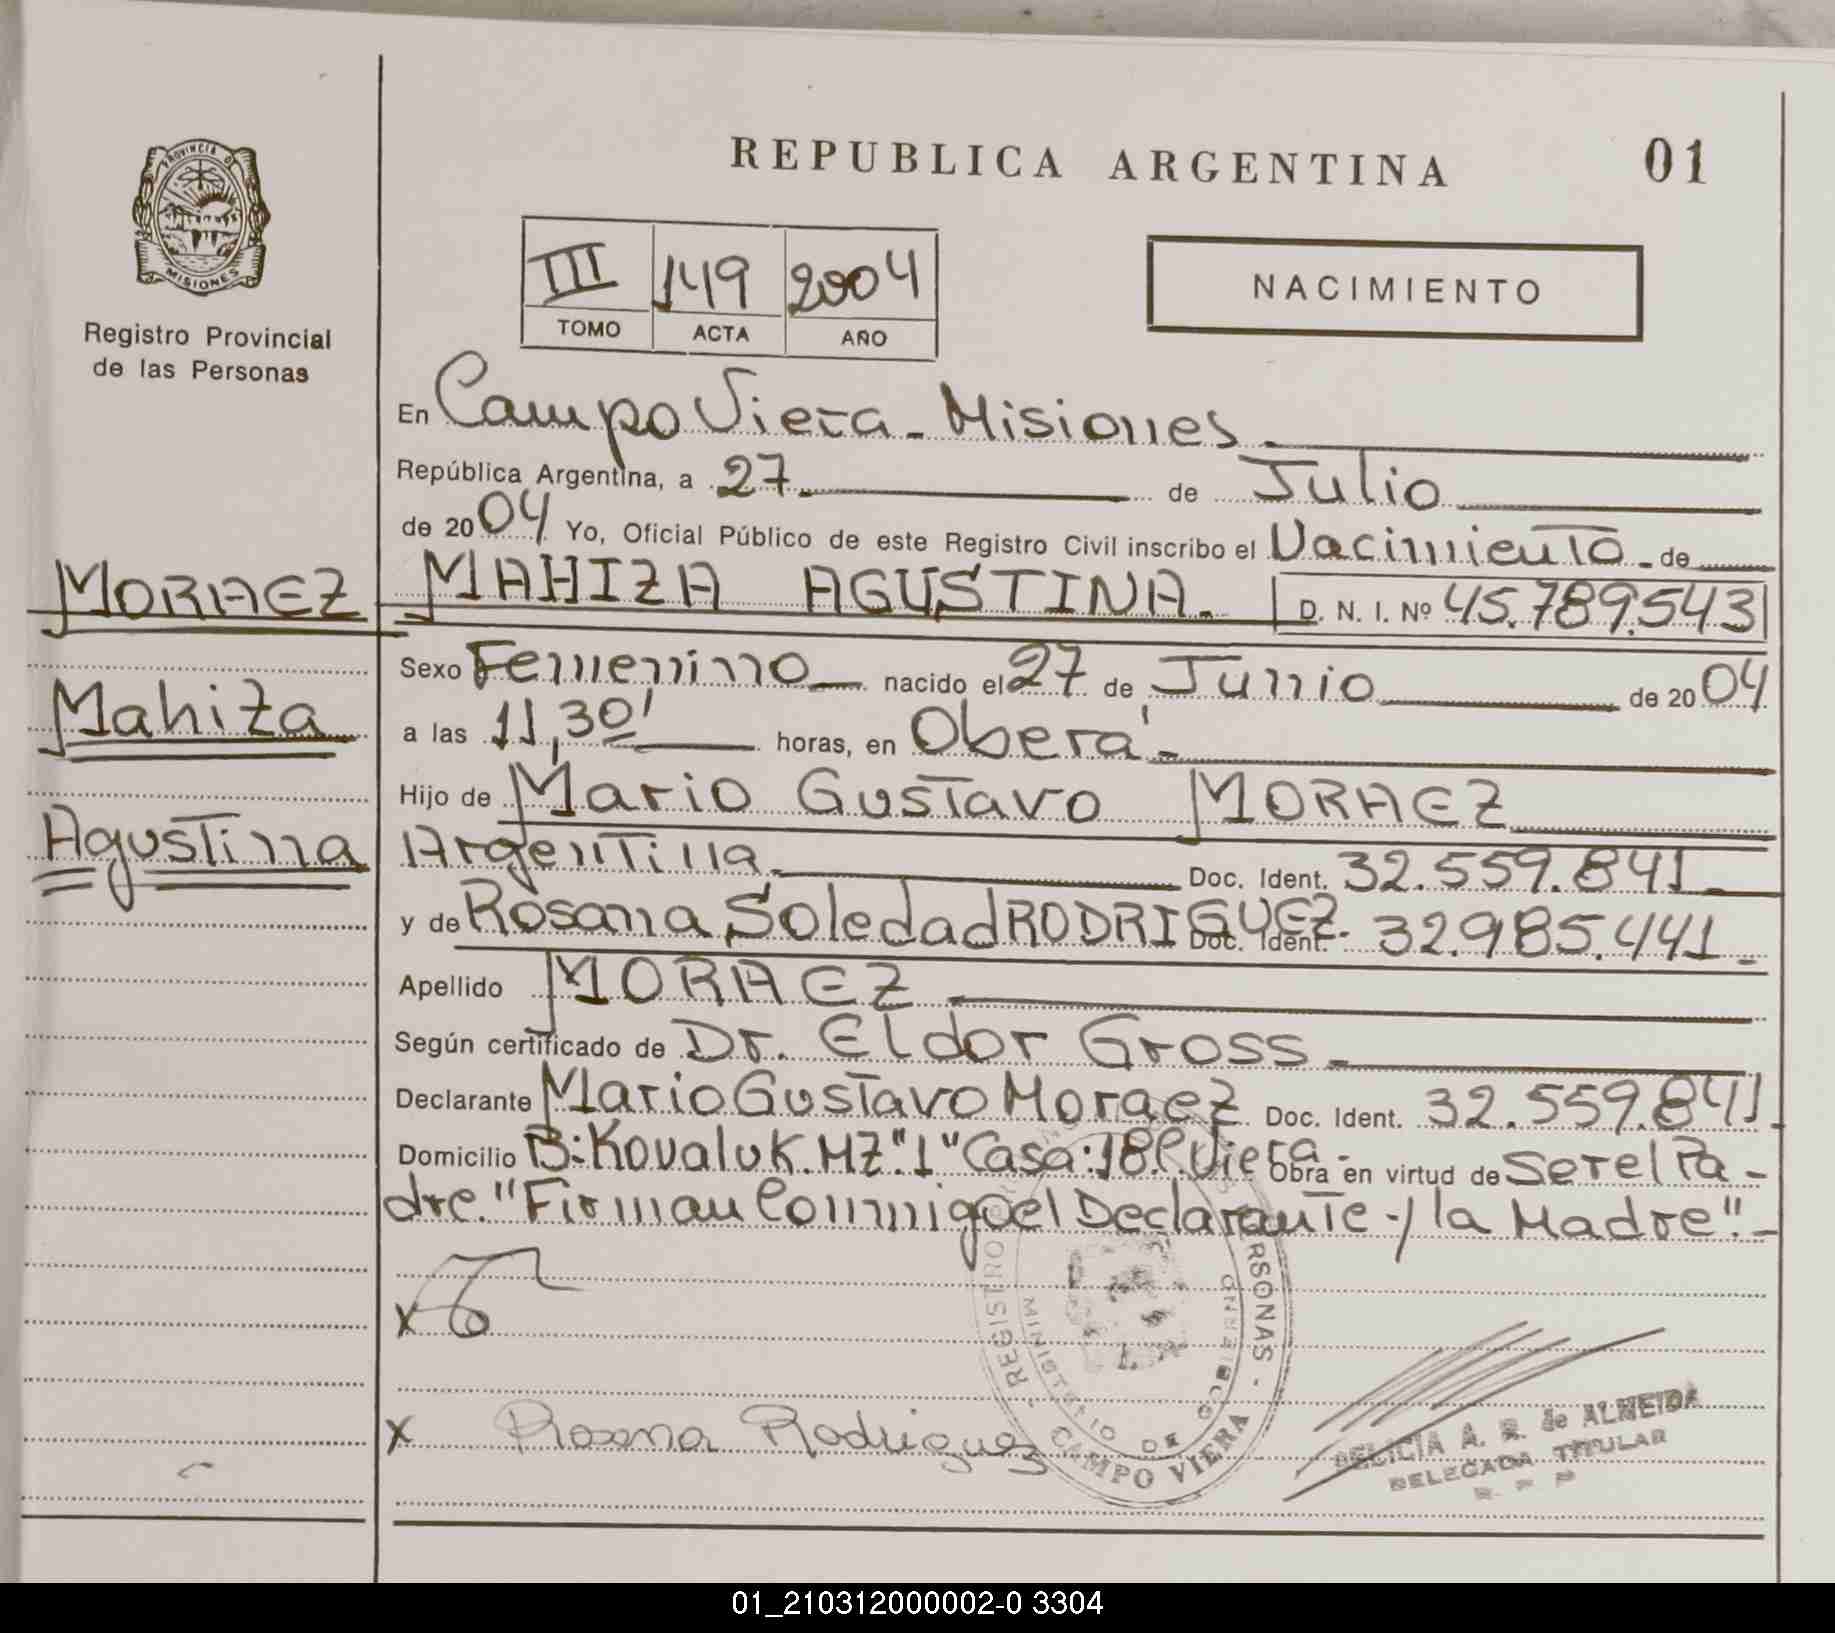 PROVINCIA D
MISIONES
Registro Provincial
de las Personas
REPUBLICA ARGENTINA 01
III 149 2004
TOMO ACTA AÑO
NACIMIENTO
En Campo Viera - Misiones -
República Argentina, a 27 de Julio
de 2004 Yo, Oficial Público de este Registro Civil inscribo el Nacimiento - de
MORAEZ MAHIZA AGUSTINA. D. N. I. Nº 45.789.543
Sexo Femenino nacido el 27 de Junio de 2004
Mahiza
a las 11,30' horas, en Oberá -
Hijo de Mario Gustavo MORAEZ
Agustina
Argentina Doc. Ident. 32.559.841 -
y de Rosana Soledad RODRIGUEZ. Doc. Ident. 32.985.441 -
Apellido MORAEZ
Según certificado de Dr. Eldor Gross -
Declarante Mario Gustavo Moraez Doc. Ident. 32.559.841.
Domicilio B:Kovaluk.MZ"1"Casa:18C.Viera - Obra en virtud de Ser el Pa-
dre."Firman Conmigo el Declarante -y la Madre".-
x
x Rosana Rodriguez
REGISTRO PERSONAS - CAMPO VIERA
MINISTERIO DE GOBIERNO
DELICIA A. R. de ALMEIDA
DELEGADA TITULAR
01_210312000002-0 3304